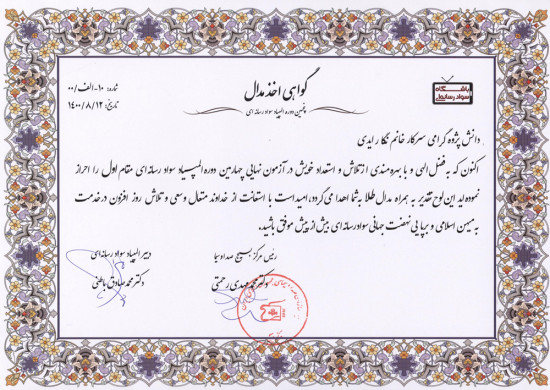 گواهی اخذ مدال
پنجمین دوره المپیاد سواد رسانه ای
شماره: ۱۰-الف/۰۰
تاریخ: ۱۴۰۰/۸/۱۲
باشگاه
سواد رسانه‌ای
دانش پژوه گرامی سرکار خانم نگار ایدی
اکنون که به فضل الهی و با بهره مندی از تلاش و استعداد خویش در آزمون نهایی چهارمین دوره المپیاد سواد رسانه ای مقام اول را احراز
نموده اید این لوح تقدیر به همراه مدال طلا به شما اهدا می گردد، امید است با استعانت از خداوند متعال وسعی و تلاش روز افزون در خدمت
به میهن اسلامی و برپایی نهضت جهانی سواد رسانه ای بیش از پیش موفق باشید.
رئیس مرکز بسیج صدا و سیما
دکتر محمد مهدی رحمتی
دبیر المپیاد سواد رسانه‌ای
دکتر محمد صادق باطنی